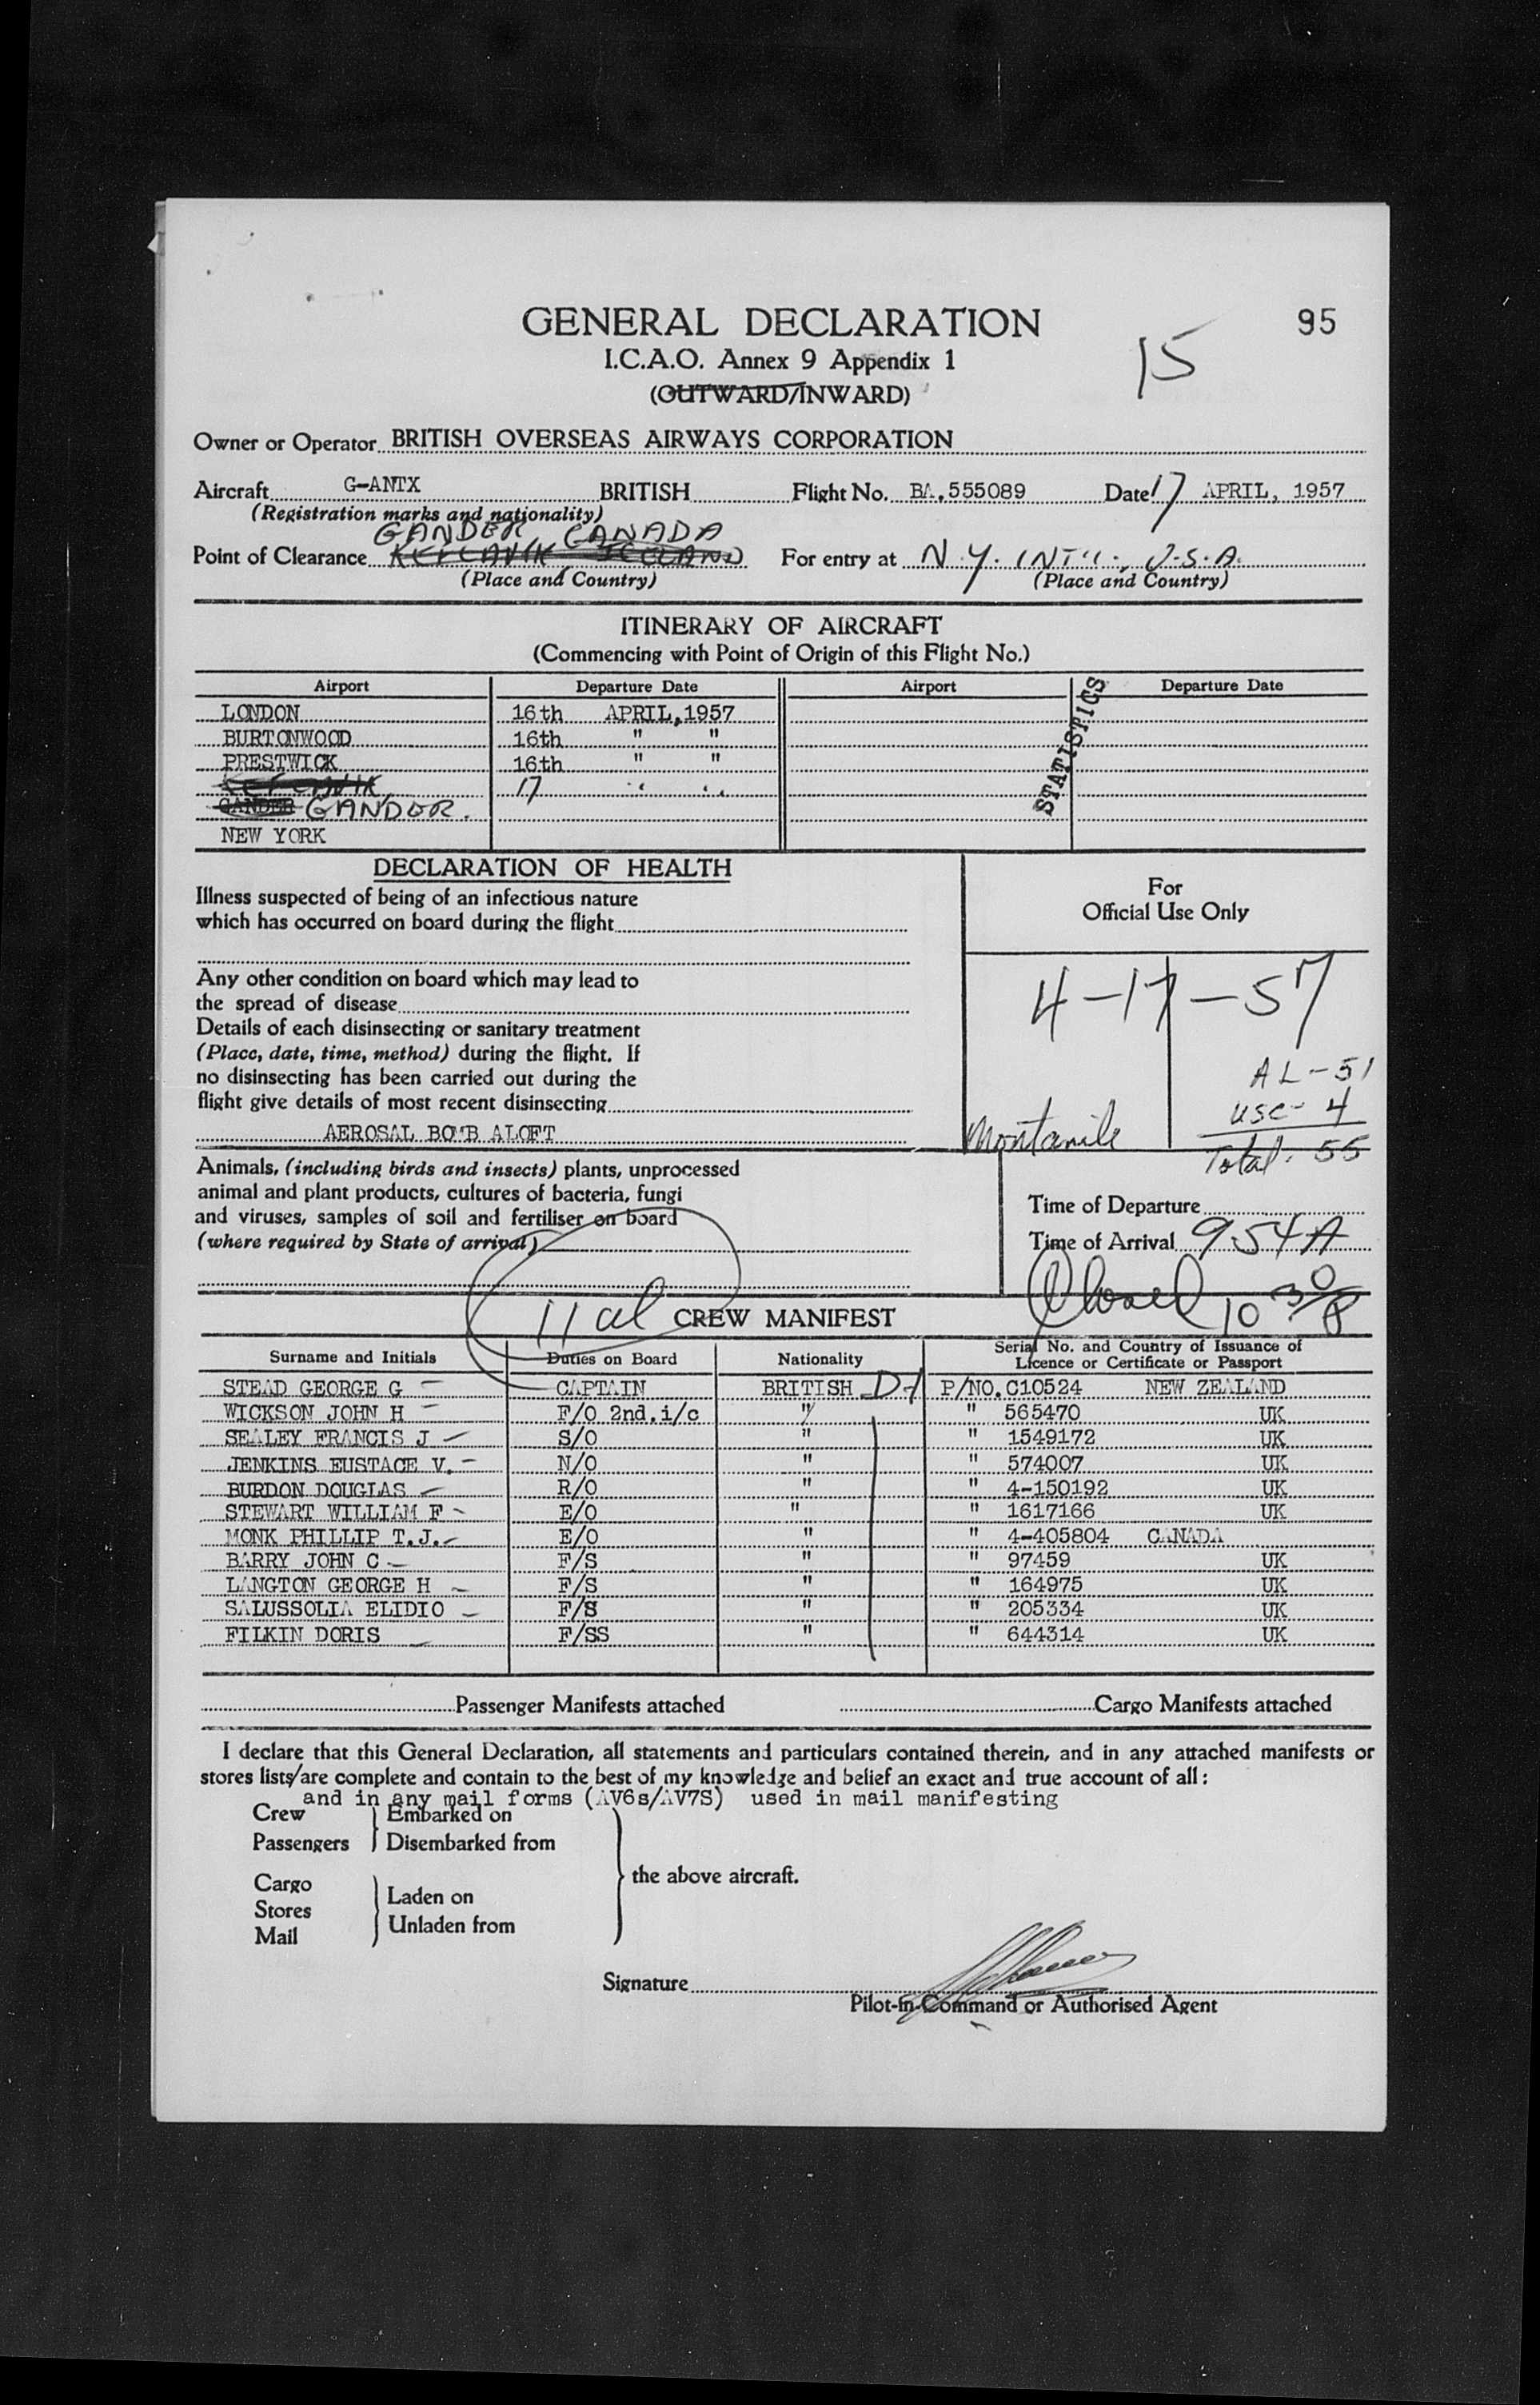 GENERAL DECLARATION
95
I.C.A.O. Annex 9 Appendix 1
15
(OUTWARD/INWARD)
Owner or Operator BRITISH OVERSEAS AIRWAYS CORPORATION
Aircraft G-ANTX BRITISH Flight No. BA.555089 Date 17 APRIL, 1957
(Registration marks and nationality)
GANDER CANADA
Point of Clearance KEFLAVIK ICELAND For entry at N.Y. INT'L., U.S.A.
(Place and Country) (Place and Country)
ITINERARY OF AIRCRAFT
(Commencing with Point of Origin of this Flight No.)
Airport Departure Date Airport Departure Date
LONDON 16th APRIL,1957
BURTONWOOD 16th " "
PRESTWICK 16th " "
KEFLAVIK 17 " "
GANDER GANDER.
NEW YORK
STATISTICS
DECLARATION OF HEALTH
Illness suspected of being of an infectious nature
which has occurred on board during the flight
Any other condition on board which may lead to
the spread of disease
Details of each disinsecting or sanitary treatment
(Place, date, time, method) during the flight. If
no disinsecting has been carried out during the
flight give details of most recent disinsecting
AEROSAL BOMB ALOFT
For
Official Use Only
4-17-57
AL-51
USC-4
Total. 55
Animals, (including birds and insects) plants, unprocessed
animal and plant products, cultures of bacteria, fungi
and viruses, samples of soil and fertiliser on board
(where required by State of arrival)
Time of Departure
Time of Arrival 954A
11 al CREW MANIFEST
Surname and Initials Duties on Board Nationality Serial No. and Country of Issuance of
Licence or Certificate or Passport
STEAD GEORGE G CAPTAIN BRITISH D-1 P/NO.C10524 NEW ZEALAND
WICKSON JOHN H F/O 2nd.i/c " " 565470 UK
SEALEY FRANCIS J S/O " " 1549172 UK
JENKINS EUSTACE V. N/O " " 574007 UK
BURDON DOUGLAS R/O " " 4-150192 UK
STEWART WILLIAM F E/O " " 1617166 UK
MONK PHILLIP T.J. E/O " " 4-405804 CANADA
BARRY JOHN C F/S " " 97459 UK
LANGTON GEORGE H F/S " " 164975 UK
SALUSSOLIA ELIDIO F/S " " 205334 UK
FILKIN DORIS F/SS " " 644314 UK
Passenger Manifests attached Cargo Manifests attached
I declare that this General Declaration, all statements and particulars contained therein, and in any attached manifests or
stores lists/are complete and contain to the best of my knowledge and belief an exact and true account of all:
and in any mail forms (AV6s/AV7S) used in mail manifesting
Crew Embarked on
Passengers Disembarked from
the above aircraft.
Cargo
Stores Laden on
Mail Unladen from
Signature
Pilot-in-Command or Authorised Agent